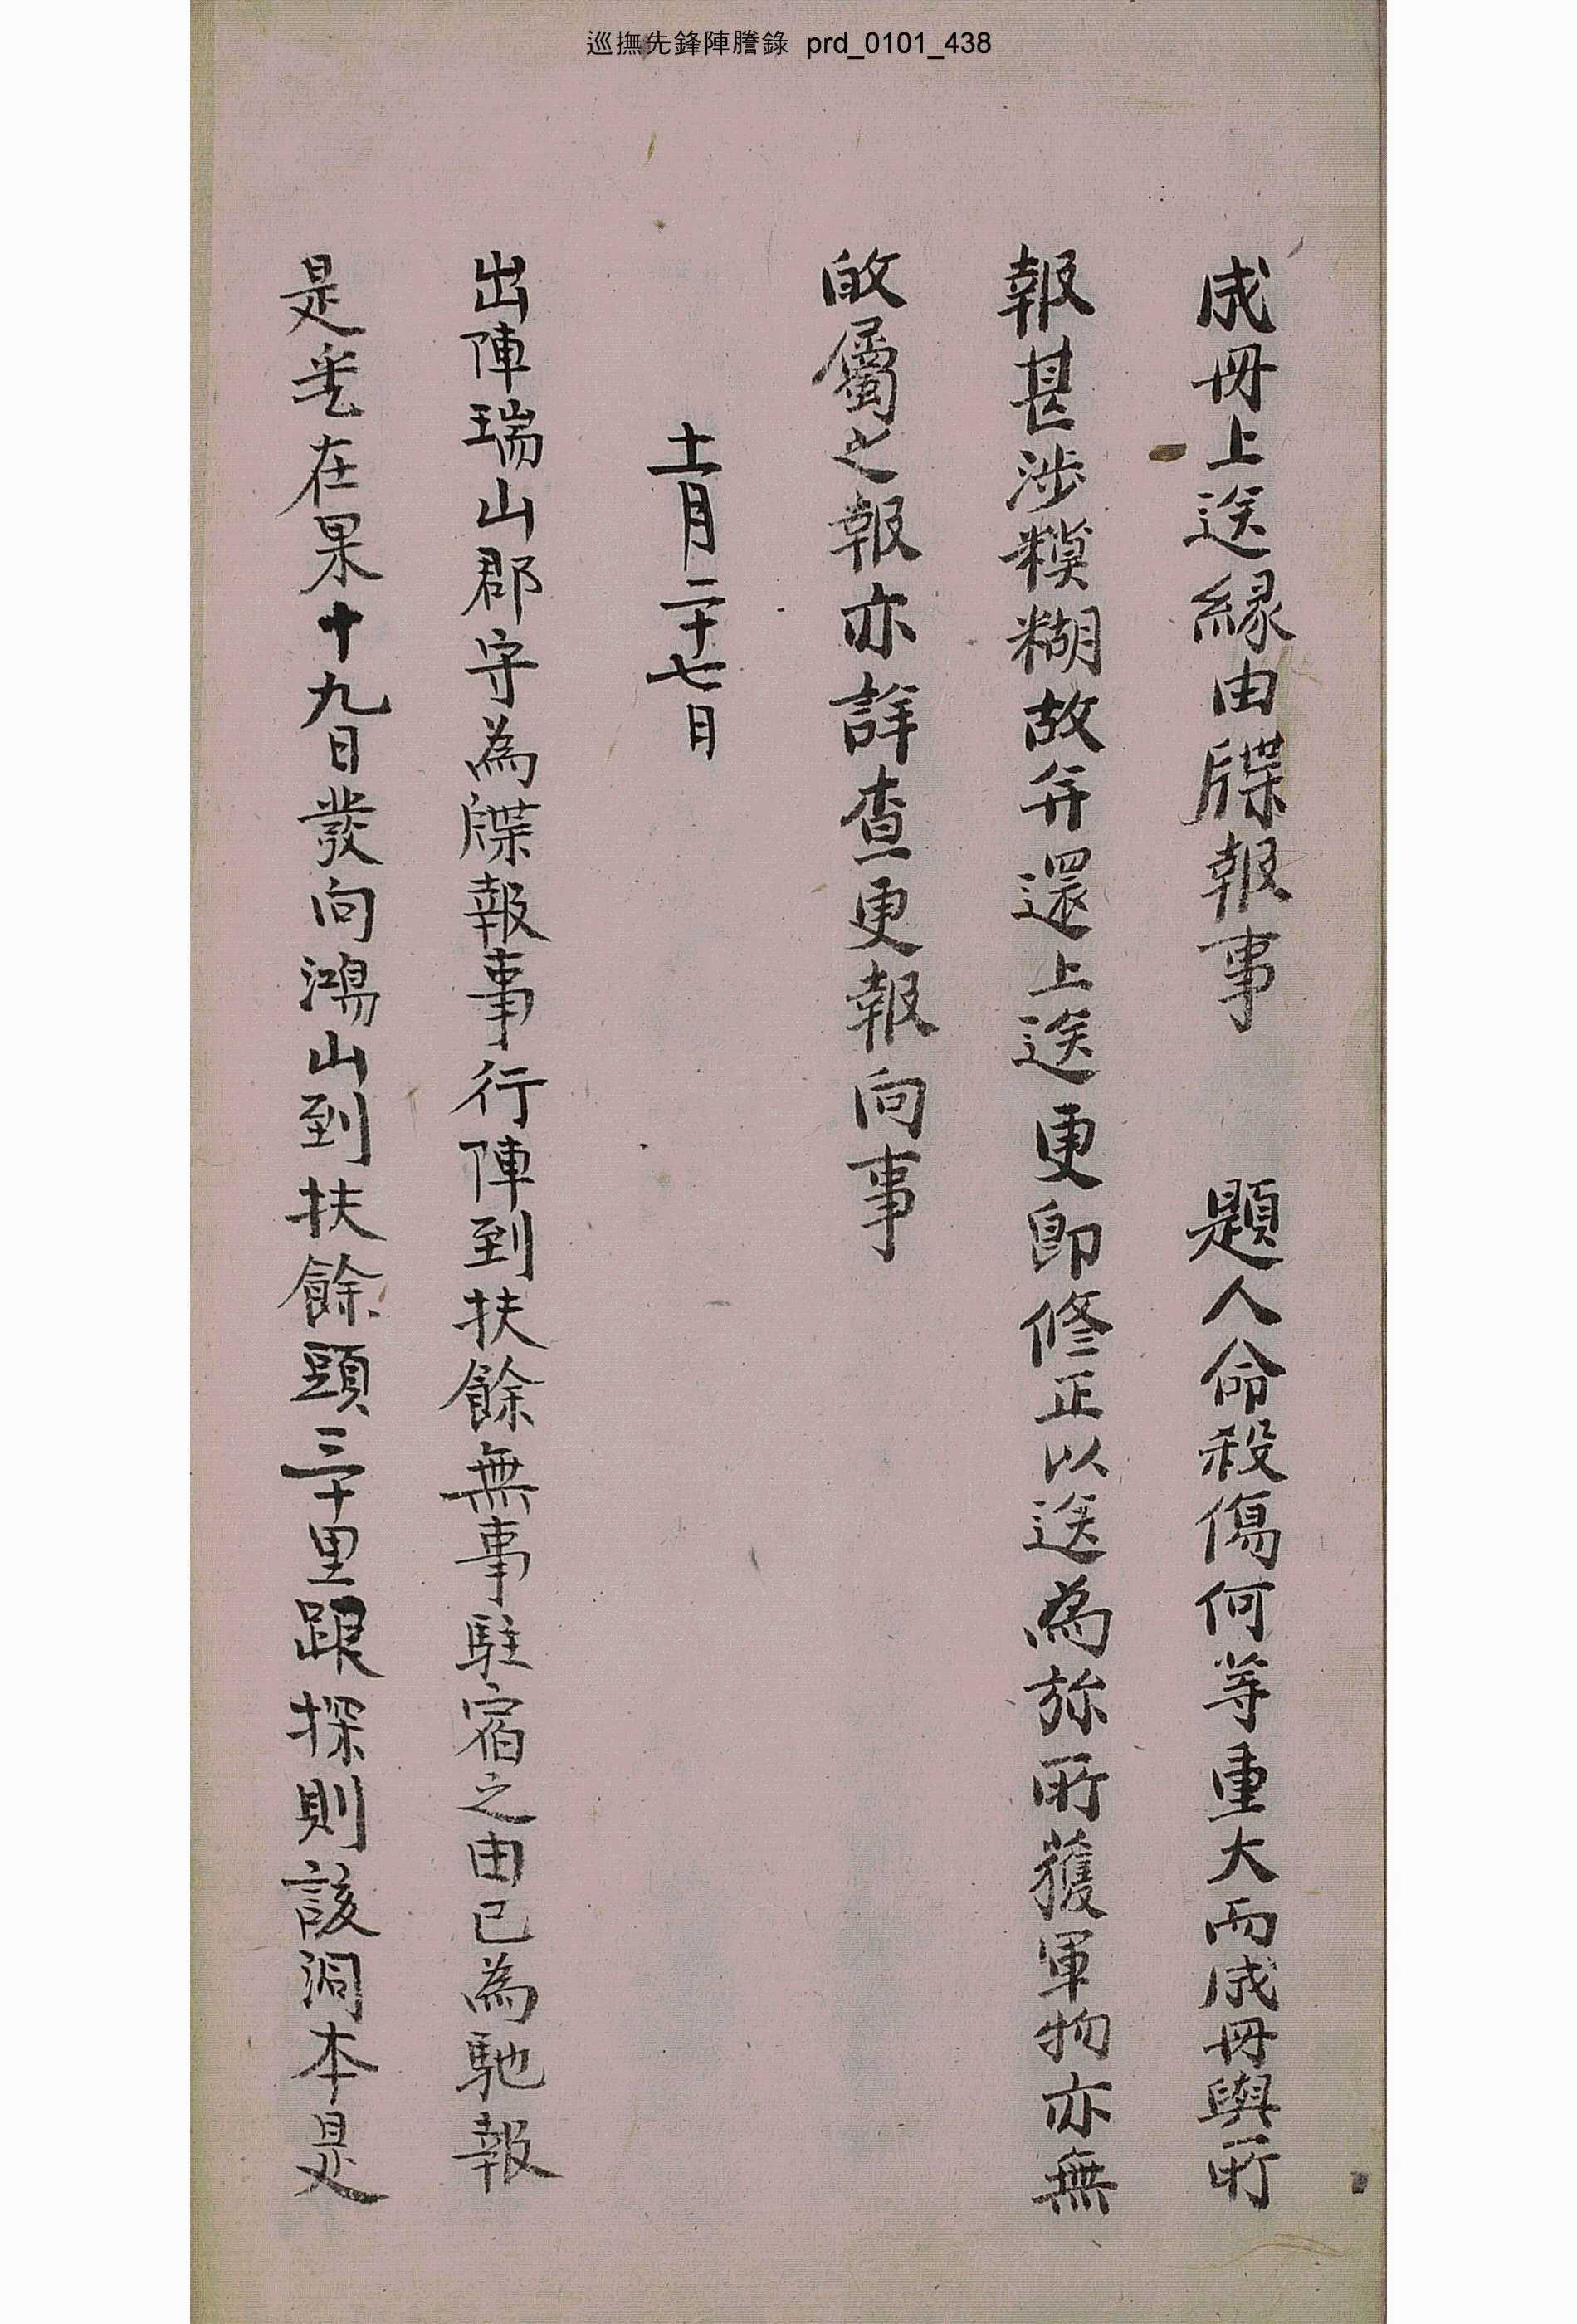 巡撫先鋒陣謄錄 prd_0101_438
成冊上送緣由牒報事 題人命殺傷何等重大而成冊與所
報甚涉糢糊故并還上送更卽修正以送爲旀所獲軍物亦無
的屬之報亦詳查更報向事
十一月二十七日
出陣瑞山郡守為牒報事行陣到扶餘無事駐宿之由已為馳報
是乎在果十九日發向鴻山到扶餘頭三十里踉探則該洞本是